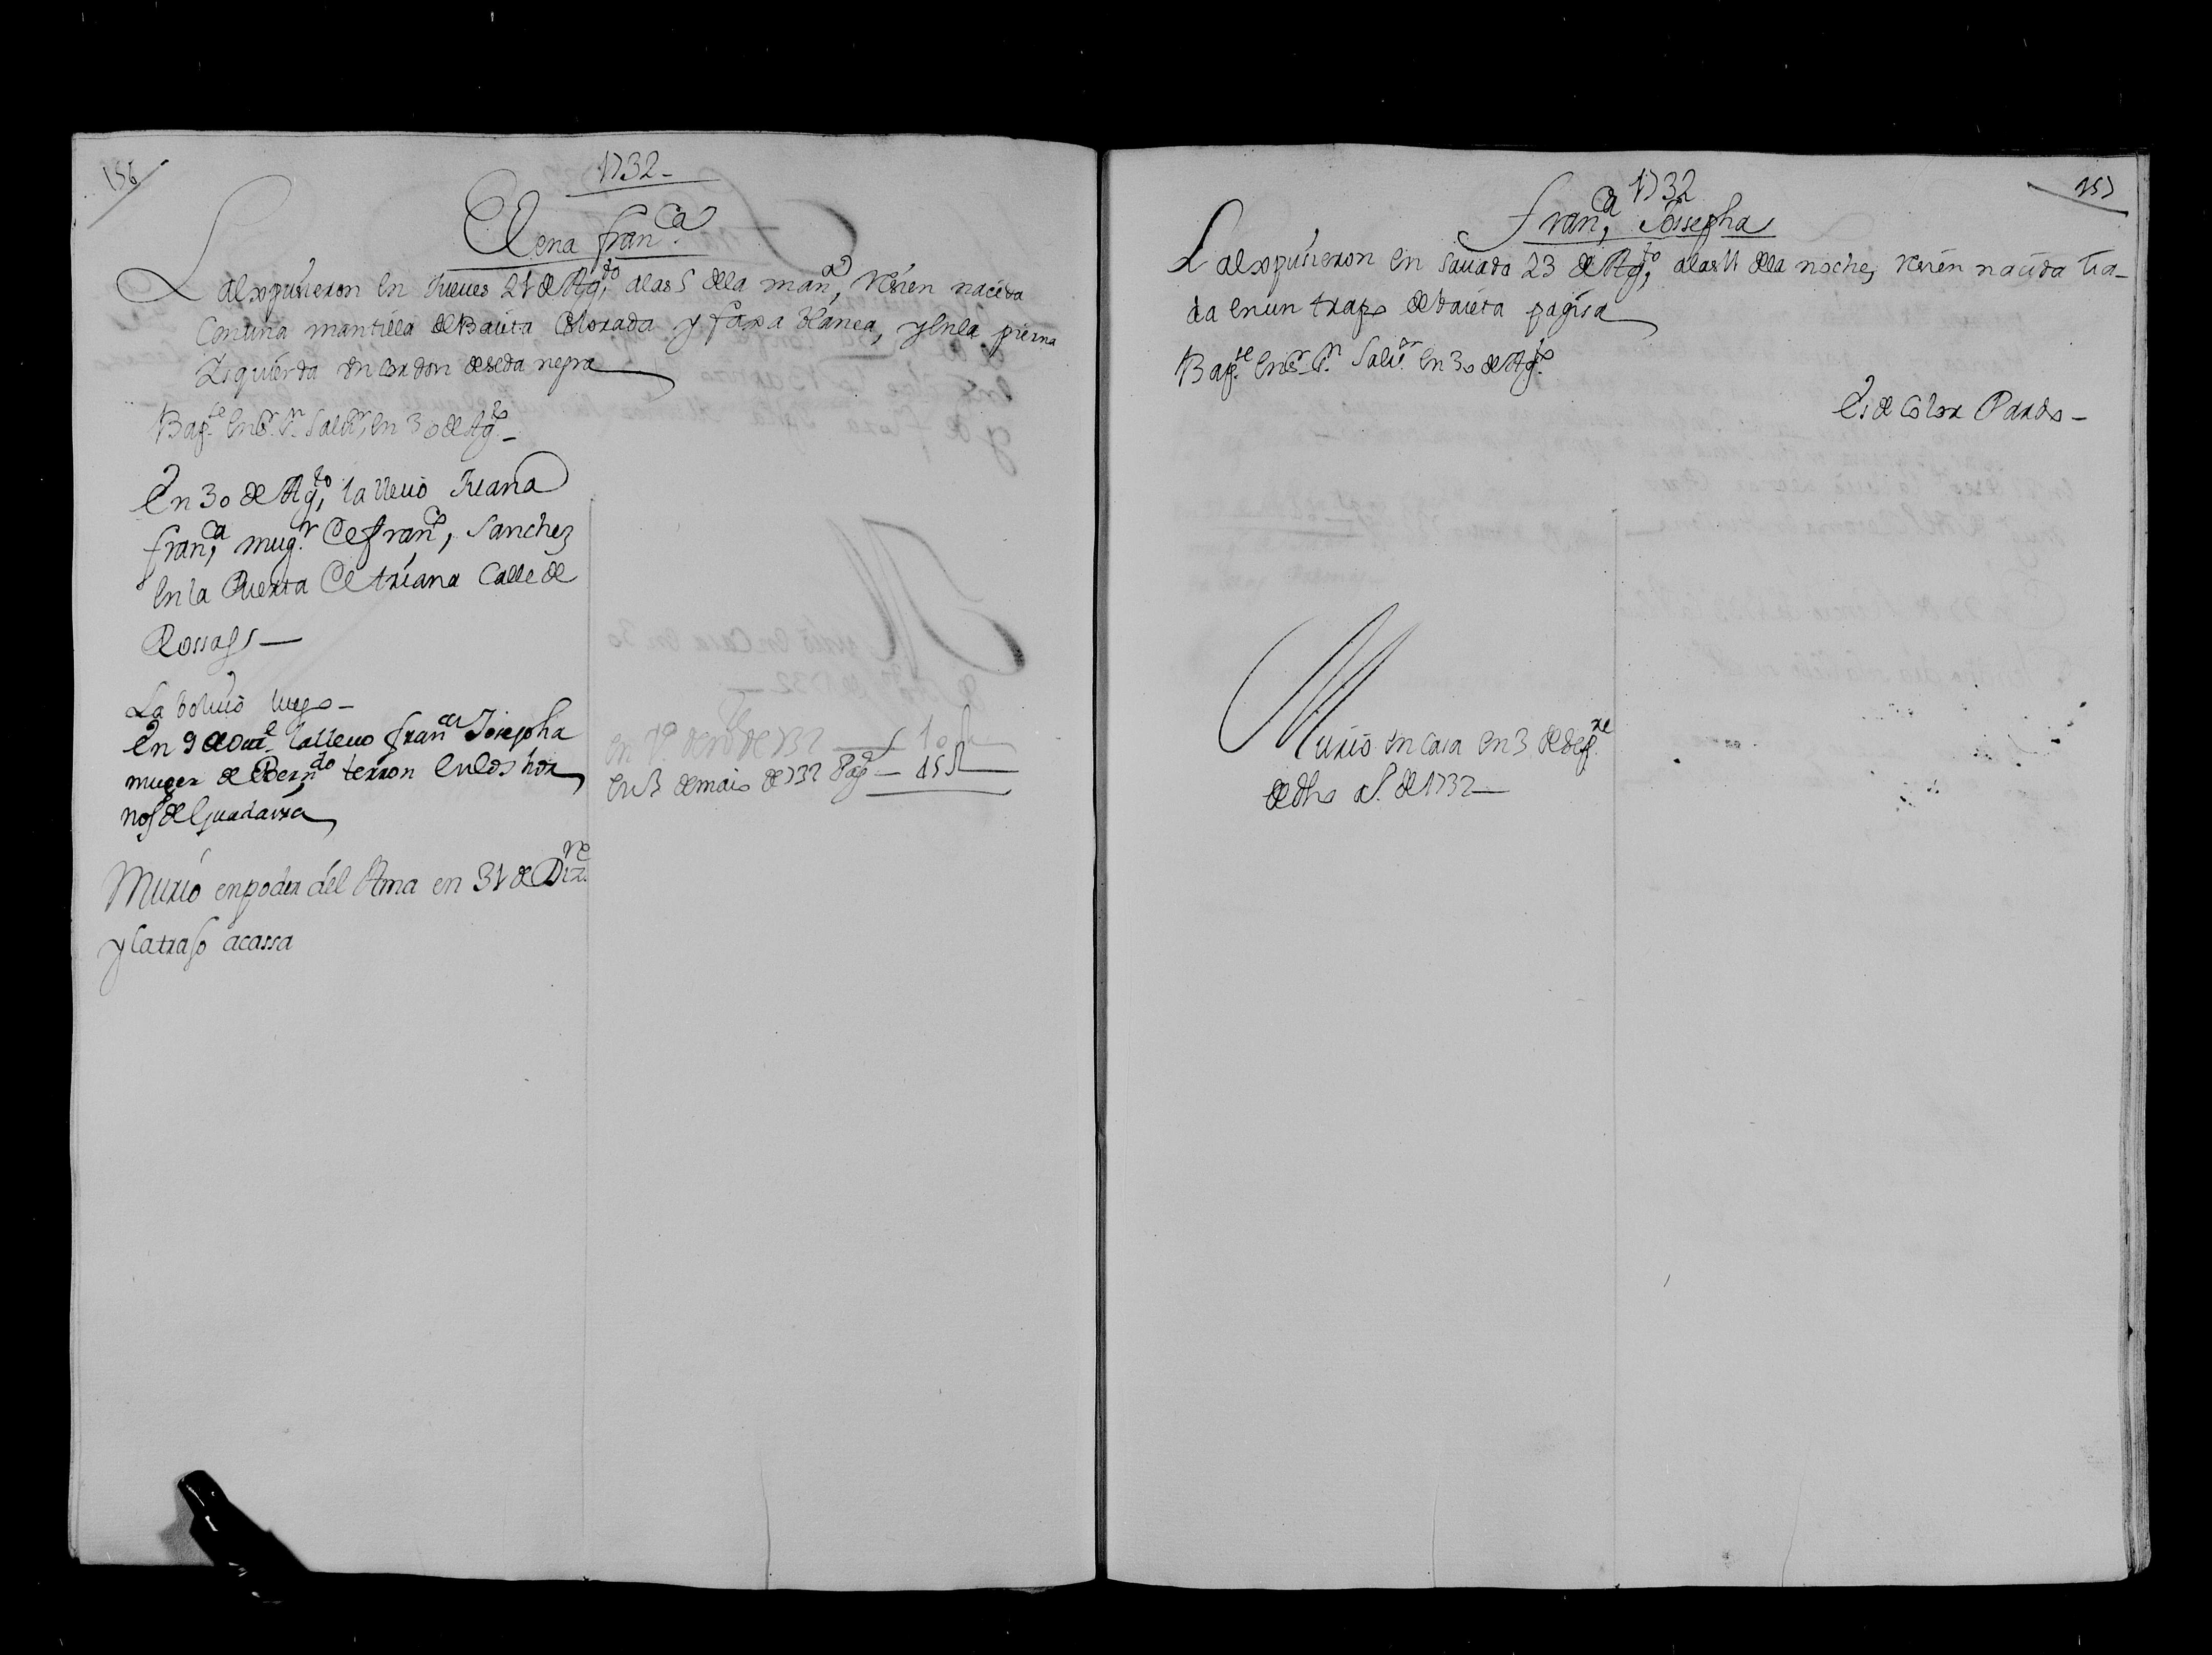 156
1732
Elena fran.ca
La expusieron en Jueves 21 de Ag.to a las 5 de la mañ.a, resien nacida
Con una mantilla de Baieta Colorada y faxa blanca, y en la pierna
Izquierda un cordon de seda negra
Bap.se en S.r S.n Salv.r en 30 de Ag.to
En 30 de Ag.to, la llevo Juana
fran.ca mug.r de fran.co, Sanchez
en la Puerta de triana Calle de
Rossas
La bolvio luego
En 9 de la llevo fran.ca Josepha
muger de Bern.do terron en los hor
nos de
Murio en poder del Ama en 31 de Diz.re
y la traxo a cassa
En 1.º de de 732 10 R
en 3 de maio de 732 Pag.e 15 R
157
1732
fran.ca Jossepha
La expusieron en savado 23 de Ag.to, a las 11 de la noche, resien nasida lia-
da en un trapo de baieta pagisa
Bap.se en S.r S.n Salv.r en 30 de Ag.to
Es de Color Pardo
Murio en casa en 3 de Sep.re
de dho a.º de 1732